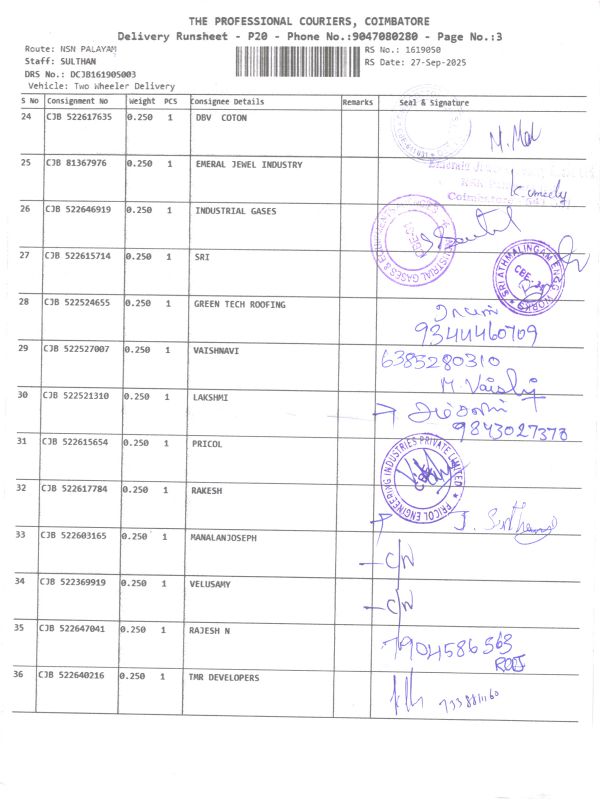 THE PROFESSIONAL COURIERS, COIMBATORE
Delivery Runsheet - P20 - Phone No.:9047080280 - Page No.:3
Route: NSN PALAYAM RS No.: 1619050
Staff: SULTHAN RS Date: 27-Sep-2025
DRS No.: DCJB161905003
Vehicle: Two Wheeler Delivery
S No Consignment No Weight PCS Consignee Details Remarks Seal & Signature
24 CJB 522617635 0.250 1 DBV COTON
25 CJB 81367976 0.250 1 EMERAL JEWEL INDUSTRY
Coimbatore
26 CJB 522646919 0.250 1 INDUSTRIAL GASES
INDUSTRIAL GASES & EQUIPMENTS
27 CJB 522615714 0.250 1 SRI
SRI ATHMALINGAM ENGG WORKS
CBE
28 CJB 522524655 0.250 1 GREEN TECH ROOFING
9344460709
29 CJB 522527007 0.250 1 VAISHNAVI 6385280310
30 CJB 522521310 0.250 1 LAKSHMI
9843027378
31 CJB 522615654 0.250 1 PRICOL
PRICOL ENGINEERING INDUSTRIES PRIVATE LIMITED
32 CJB 522617784 0.250 1 RAKESH
33 CJB 522603165 0.250 1 MANALANJOSEPH
- C/N
34 CJB 522369919 0.250 1 VELUSAMY
- C/N
35 CJB 522647041 0.250 1 RAJESH N 7904586563
36 CJB 522640216 0.250 1 TMR DEVELOPERS